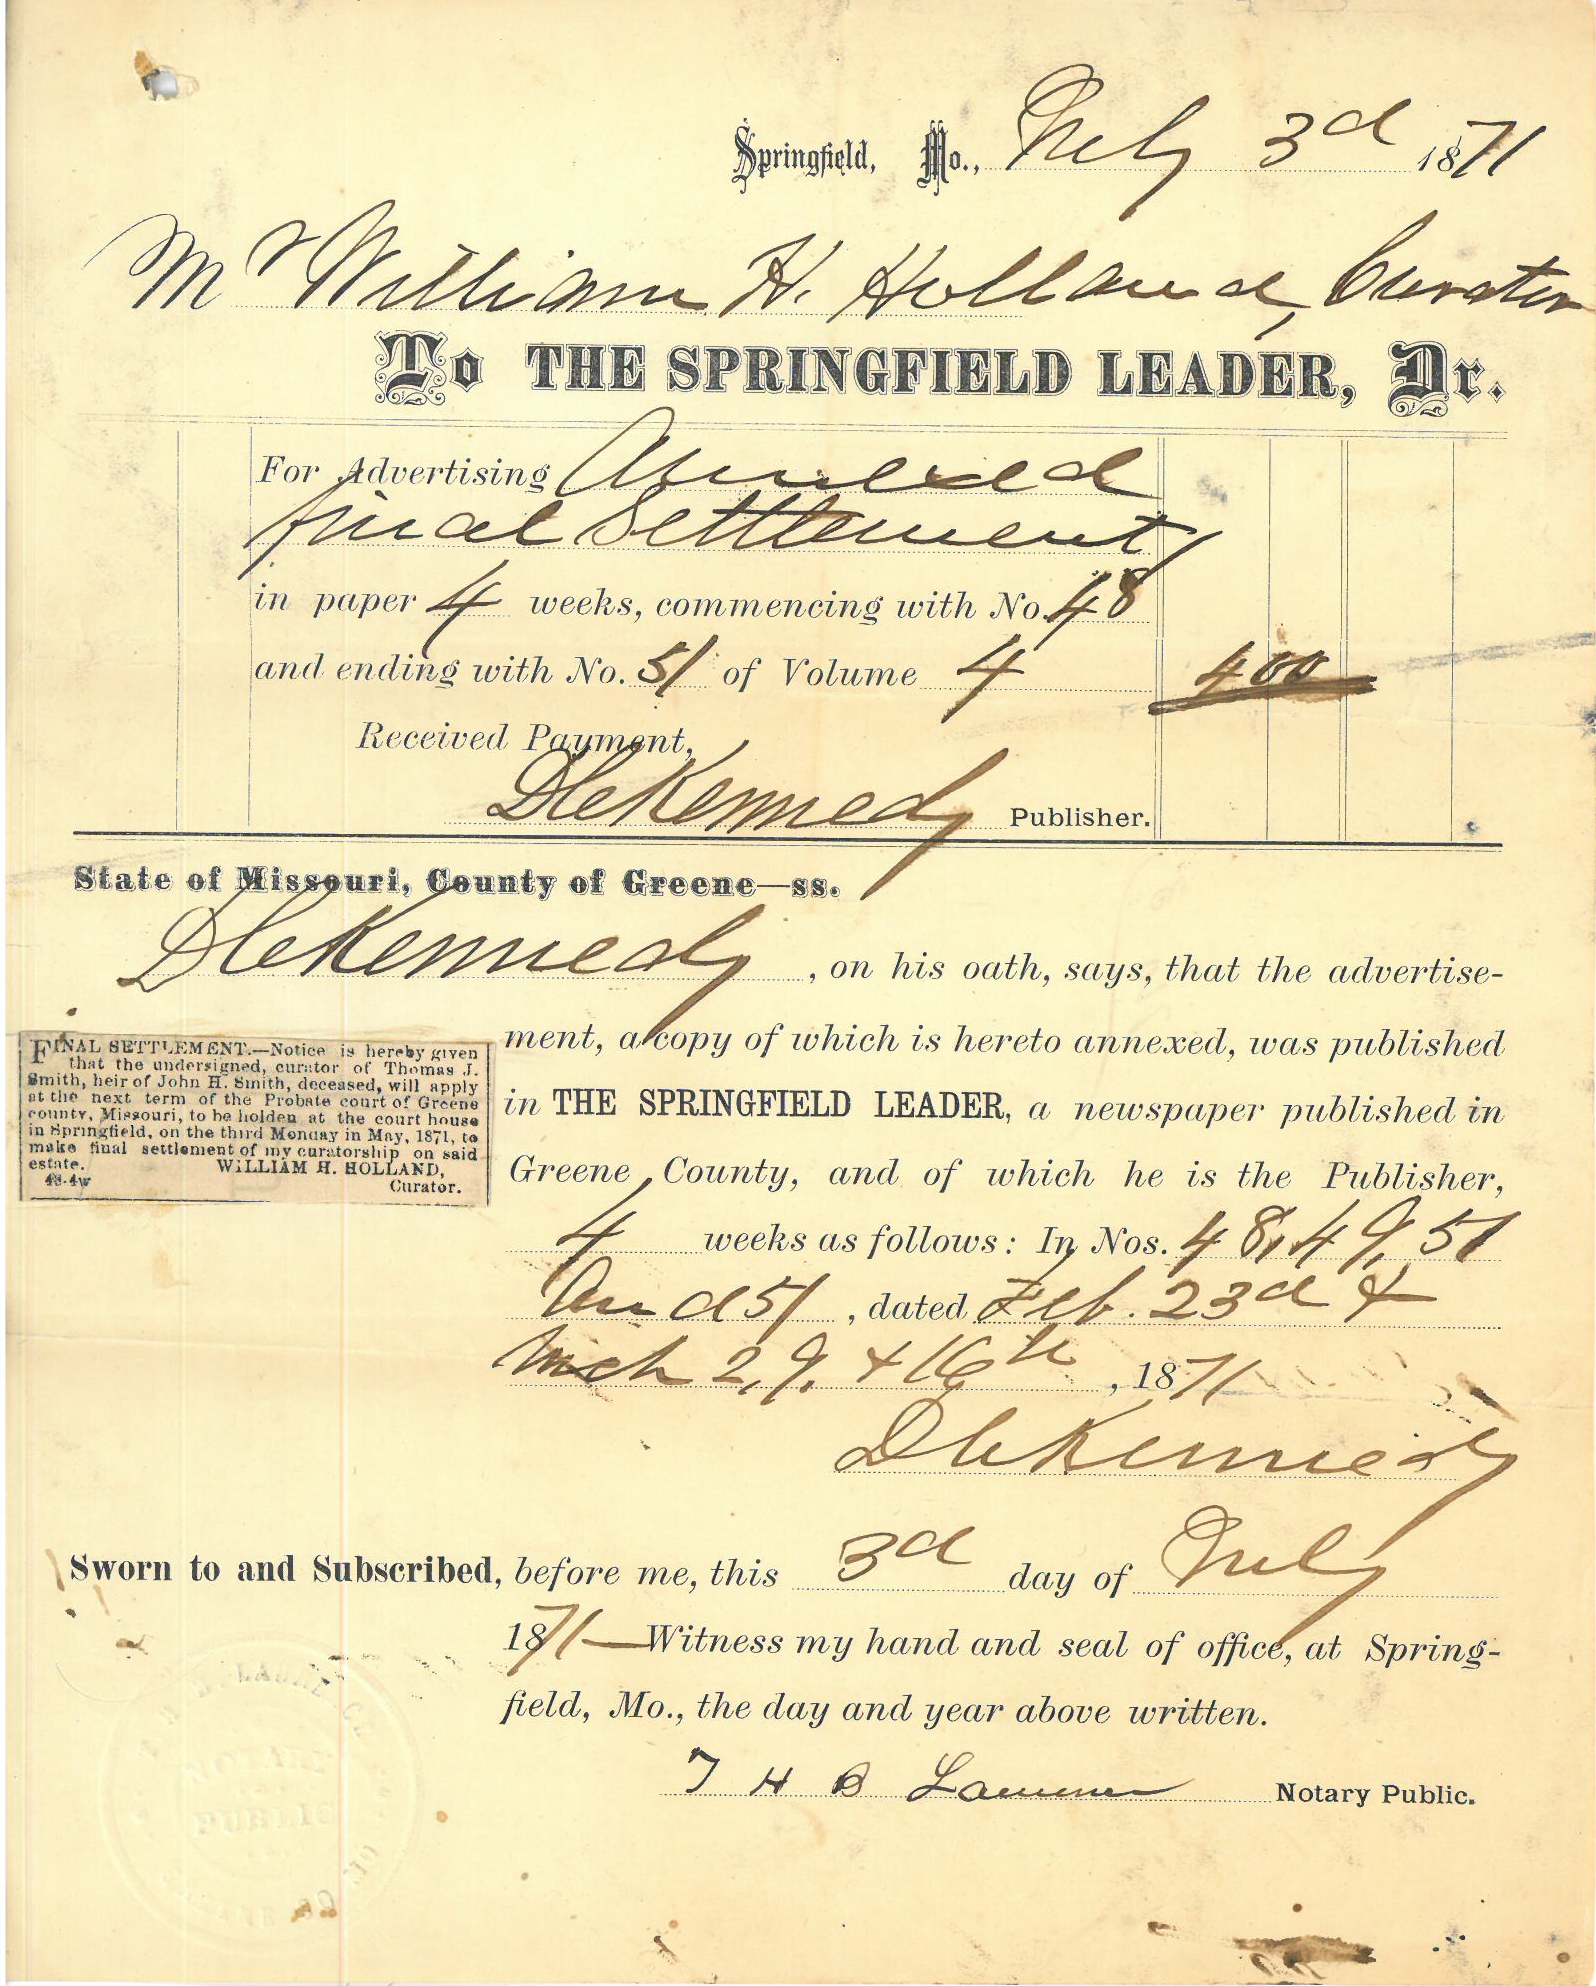 Springfield, Mo., July 3d 1871
Mr William H. Holland, Curator
To THE SPRINGFIELD LEADER, Dr.
For Advertising Annexed
final Settlement
in paper 4 weeks, commencing with No. 48
and ending with No. 51 of Volume 4 4 00
Received Payment,
D C Kennedy Publisher.
State of Missouri, County of Greene—ss.
D C Kennedy, on his oath, says, that the advertise-
ment, a copy of which is hereto annexed, was published
in THE SPRINGFIELD LEADER, a newspaper published in
Greene County, and of which he is the Publisher,
4 weeks as follows: In Nos. 48, 49, 51
And 51, dated Feb. 23d &
Mch 2, 9, & 16th, 1871
D C Kennedy
FINAL SETTLEMENT.—Notice is hereby given
that the undersigned, curator of Thomas J.
Smith, heir of John H. Smith, deceased, will apply
at the next term of the Probate court of Greene
county, Missouri, to be holden at the court house
in Springfield, on the third Monday in May, 1871, to
make final settlement of my curatorship on said
estate. WILLIAM H. HOLLAND,
48-4w Curator.
Sworn to and Subscribed, before me, this 3d day of July
1871—Witness my hand and seal of office, at Spring-
field, Mo., the day and year above written.
T H B Notary Public.
NOTARY
PUBLIC